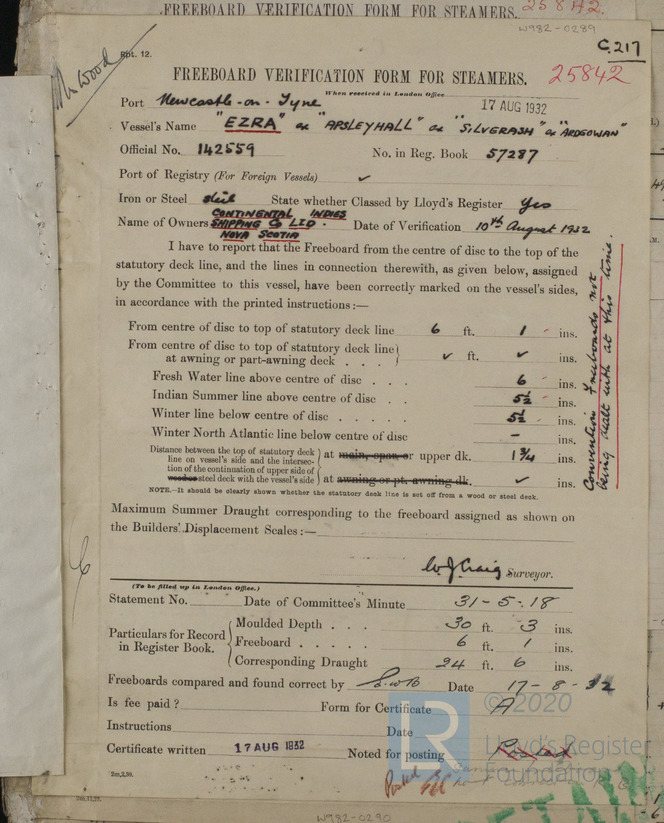 FREEBOARD VERIFICATION FORM FOR STEAMERS. 25842.
W982-0289
Rpt. 12.
C.217
Mr Wood
FREEBOARD VERIFICATION FORM FOR STEAMERS. 25842
When received in London Office
Port Newcastle-on-Tyne 17 AUG 1932
Vessel's Name "EZRA" ex "APSLEYHALL" ex "SILVERASH" ex "ARDGOWAN"
Official No. 142559 No. in Reg. Book 57287
Port of Registry (For Foreign Vessels) ✓
Iron or Steel steel State whether Classed by Lloyd's Register Yes
CONTINENTAL INDIES
Name of Owners SHIPPING Co LTD. Date of Verification 10th August 1932
NOVA SCOTIA
I have to report that the Freeboard from the centre of disc to the top of
statutory deck line, and the lines in connection therewith, as given below, assigned
by the Committee to this vessel, have been correctly marked on the vessel's sides,
in accordance with the printed instructions:—
Convention Freeboards not
being dealt with at this time.
From centre of disc to top of statutory deck line 6 ft. 1 ins.
From centre of disc to top of statutory deck line
at awning or part-awning deck . . . ✓ ft. ✓ ins.
Fresh Water line above centre of disc . . . 6 ins.
Indian Summer line above centre of disc . . 5½ ins.
Winter line below centre of disc . . . . . 5½ ins.
Winter North Atlantic line below centre of disc – ins.
Distance between the top of statutory deck
line on vessel's side and the intersec-
tion of the continuation of upper side of
wooden steel deck with the vessel's side
at main, spar or upper dk. 1¾ ins.
at awning or pt. awning dk. ✓ ins.
NOTE.—It should be clearly shown whether the statutory deck line is set off from a wood or steel deck.
Maximum Summer Draught corresponding to the freeboard assigned as shown on
the Builders' Displacement Scales :—
W J Craig Surveyor.
(To be filled up in London Office.)
Statement No. Date of Committee's Minute 31-5-18
Particulars for Record
in Register Book.
Moulded Depth . . . 30 ft. 3 ins.
Freeboard . . . . . 6 ft. 1 ins.
Corresponding Draught 24 ft. 6 ins.
Freeboards compared and found correct by Date 17-8-32
Is fee paid ? Form for Certificate A
Instructions Date
Certificate written 17 AUG 1932 Noted for posting Posted
Posted
2m,2,30.
© 2020
Lloyd's Register
Foundation
W982-0290